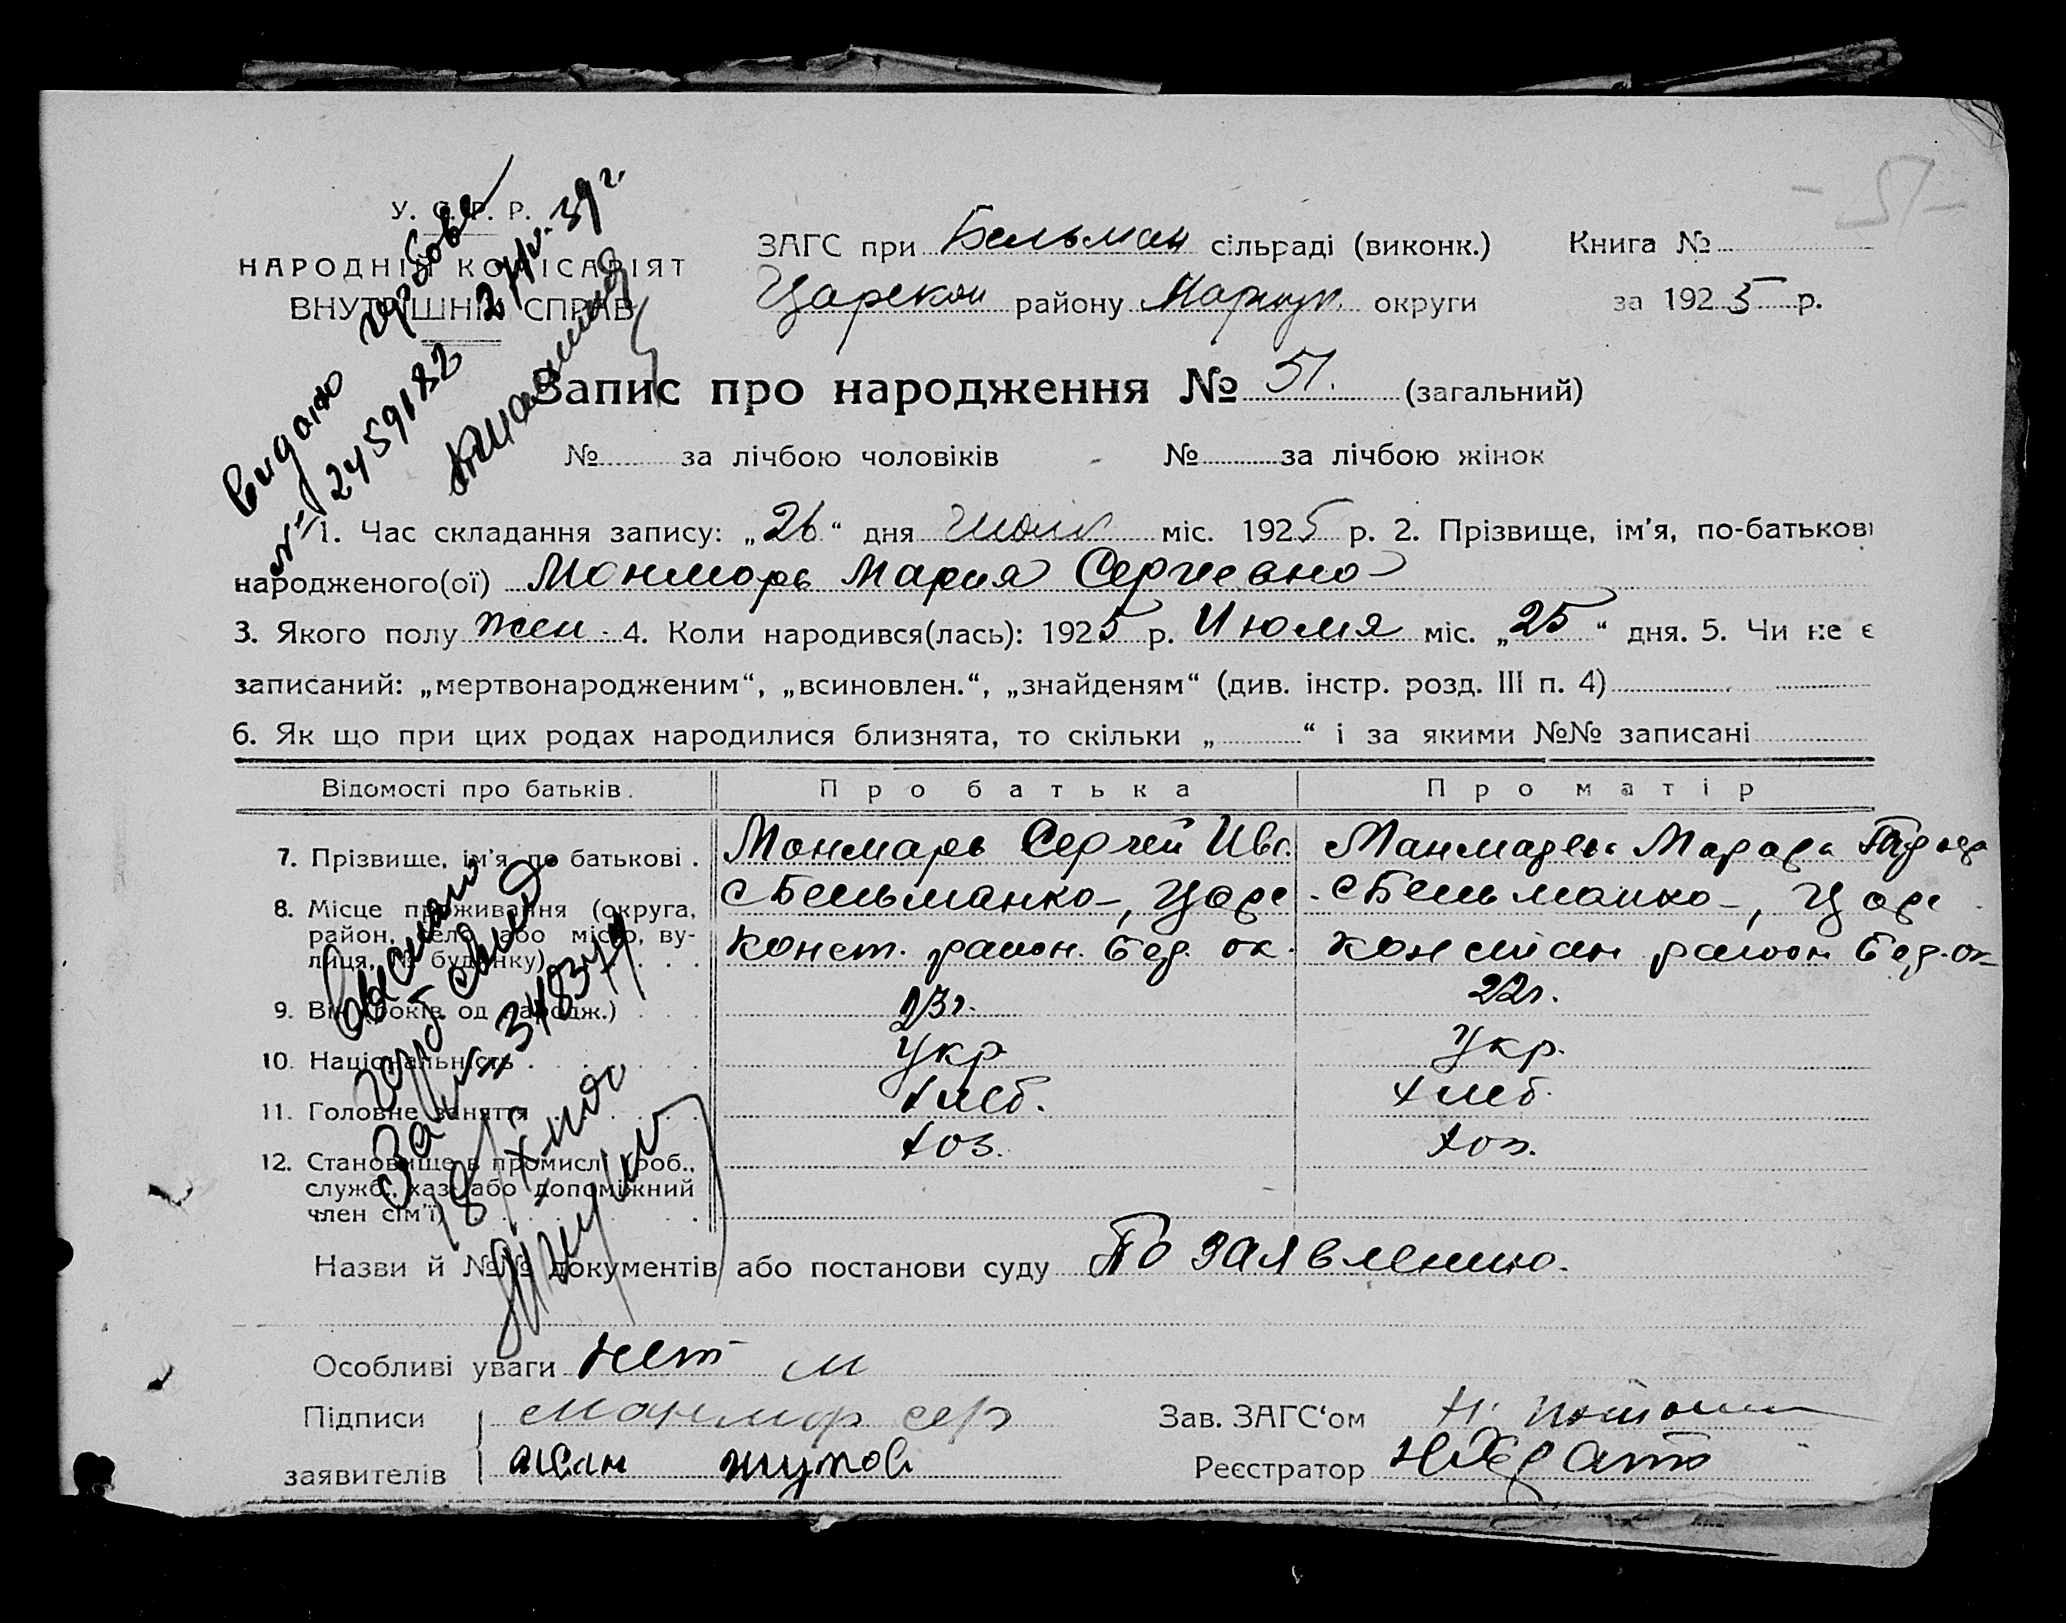 - 51 -
У. С. Р. Р.
НАРОДНІЙ КОМІСАРІЯТ
ВНУТРІШНІХ СПРАВ
ЗАГС при Бельман сільраді (виконк.) Книга №
Царекон району Мариуп. округи за 1925 р.
Запис про народження № 51. (загальний)
№ за лічбою чоловіків № за лічбою жінок
Видано
№ 2459182 39 г.
1. Час складання запису: „26“ дня Июля міс. 1925 р. 2. Прізвище, ім'я, по-батькові
народженого(ої) Монмарь Мария Сергиевна
3. Якого полу жен. 4. Коли народився(лась): 1925 р. Июля міс. „25“ дня. 5. Чи не є
записаний: „мертвонародженим“, „всиновлен.“, „знайденям“ (див. інстр. розд. III п. 4)
6. Як що при цих родах народилися близнята, то скільки „ “ і за якими №№ записані
Відомості про батьків. Про батька Про матір
7. Прізвище, ім'я, по батькові . Монмарь Сергей Ив.
8. Місце проживання (округа, с Бельманка, Царе с Бельманка, Царе
район, село або місто, ву- Конст. район. Бер. ок. констан район Бер. ок
лиця, № будинку)
9. Вік (років од народж.) . . . 23 г. 22 г.
10. Національність . . . . . . . Укр Укр.
11. Головне заняття . . . . . хлеб. хлеб.
12. Становище в промислі (роб., хоз. хоз.
служб., хаз. або допоміжний
член сім'ї)
Назви й №№ документів або постанови суду По заявлению.
Особливі уваги нет
Підписи монмар сер Зав. ЗАГС'ом Н.
заявителів Реєстратор